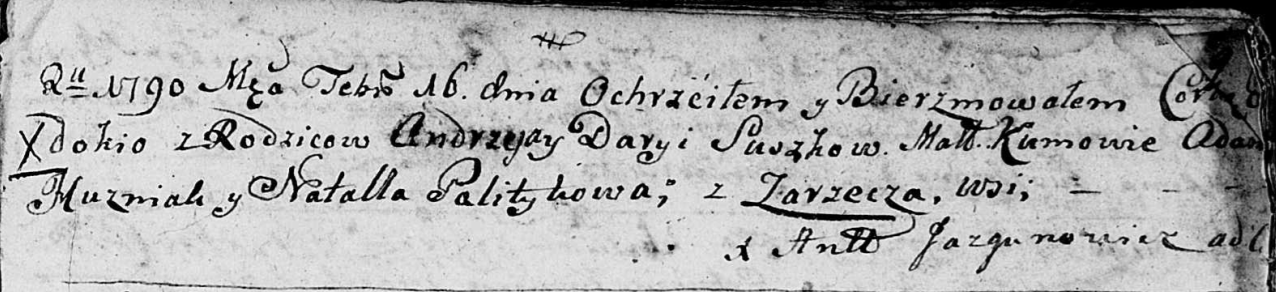 Ru 1790 Mca Febr 16. dnia Ochrzciłem y Bierzmowałem Corkę
Xdokio z Rodzicow Andrzeyay Daryi Suszkow. Małł. Kumowie Adam
Kuzniak y Natalla Palitykowa; z Zarzecza, wsi;
x Antt Jazgunowicz adl